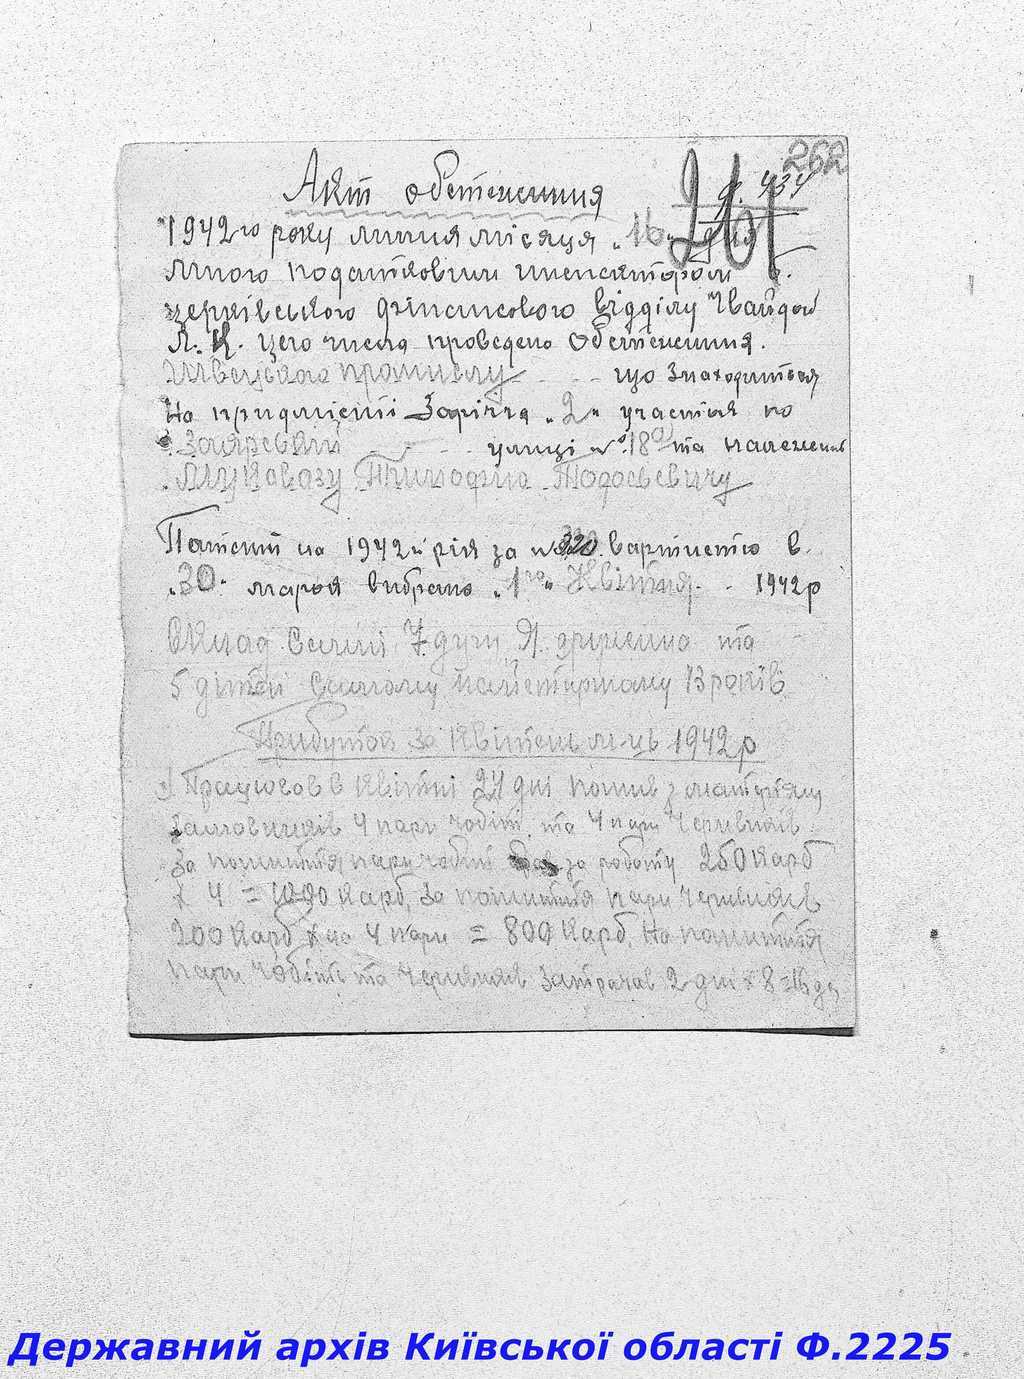 262
434
Акт обстеження
1942го року липня місяця „16" дня
Мною податковим инспектором Б.
церківського фінансового відділу
Л. К. цего числа проведено обстеження.
Швецького промислу - - - що знаходиться
На предмісті Заріччя „2" участок по
Заярській - - улиці № 18а та належить
Мукавозу Тимофію Тодосьевичу
Патент на 1942й рік за № 320 вартістю в
„30" марок вибрано „1го" Квітня - 1942р
Склад Семьі 7 душ, Я. дружина та
5 дітей Самому найстаршому 13 років
Прибуток за Квітень м-ць 1942р
1) Працював в Квітні 24 дні пошив з матеріялу
Замовників 4 пари чобіт, та 4 пари Черевиків
За пошиття пари чобіт брав за роботу 250 Карб
х 4 = 1000 Карб, За пошиття пари Черевиків
200 Карб х на 4 пари = 800 Карб. На пошиття
пари Чобіт та Черевиків затрачав 2 дні х 8 = 16 дн
Державний архів Київської області Ф.2225